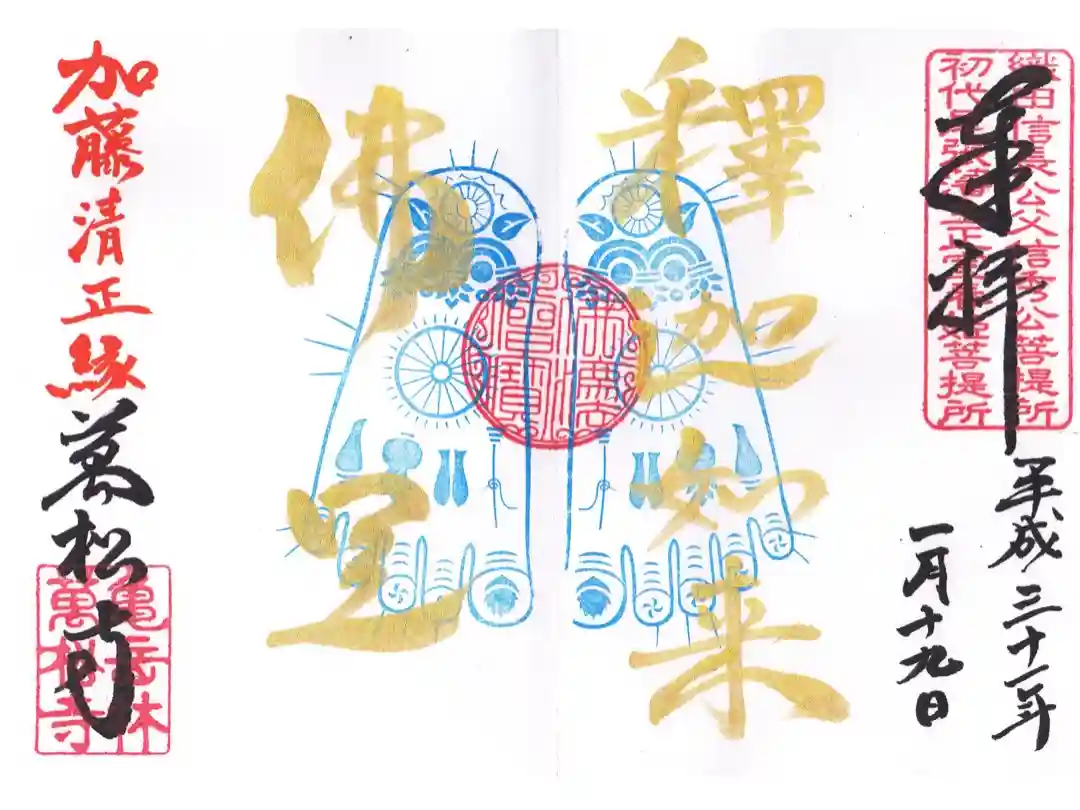 織田信長公父信秀公菩提所
初代尾張藩主正室春姫菩提所
奉拝
平成三十一年
一月十九日
釋迦如来
佛足
加藤清正縁
萬松寺
亀岳林
萬松寺